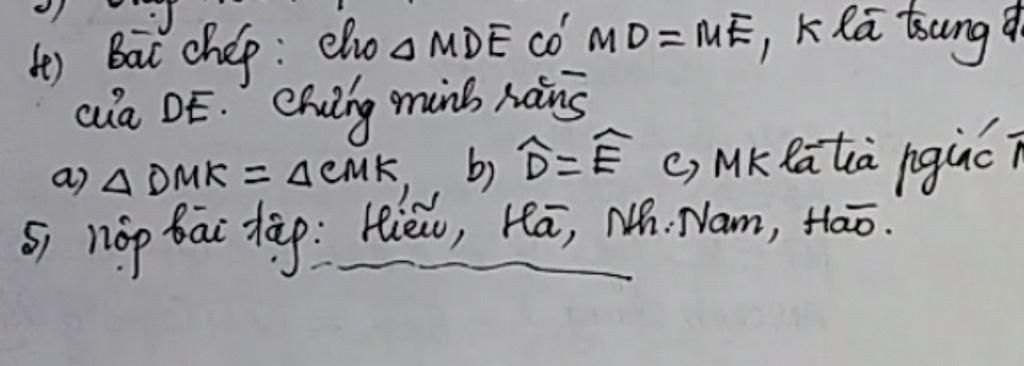 4) Bài chép: cho △ MDE có MD = ME, K là trung
của DE. Chứng minh rằng
a) △ DMK = △CMK, b) D̂ = Ê c) MK là tia pgiác
5, nộp bài tập: Hiếu, Hà, Nh. Nam, Hào.